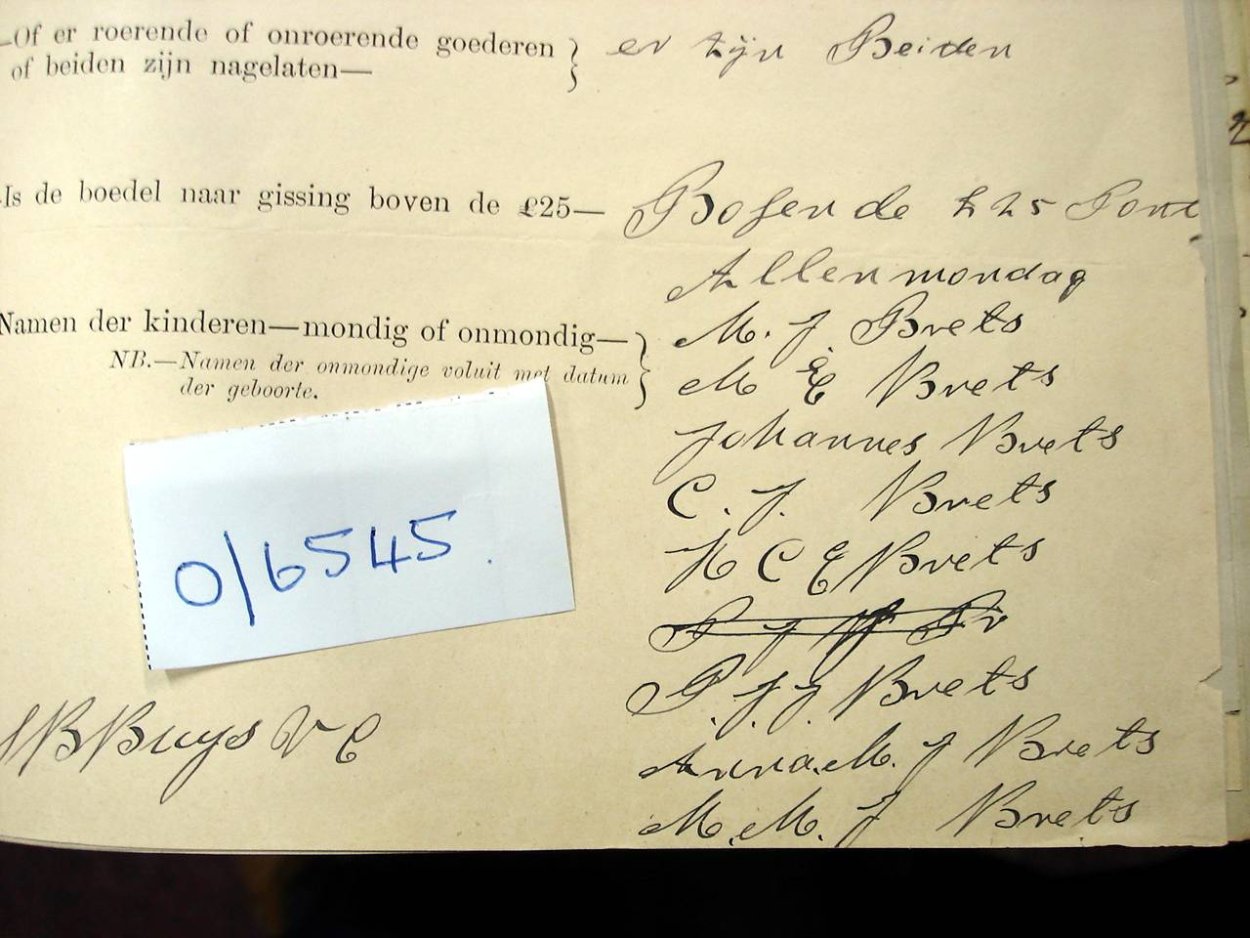 Of er roerende of onroerende goederen } er zijn Beiden
of beiden zijn nagelaten—
Is de boedel naar gissing boven de £25— Bofen de £25 Pont
Allen mondag
Namen der kinderen—mondig of onmondig— } M. J. Brets
NB.—Namen der onmondige voluit met datum
der geboorte.
M E Brets
Johannes Brets
C. J. Brets
H C E Brets
0/6545.
P. J. J. Brets
B Buys V C
Anna. M. J Brets
M. M. J Brets